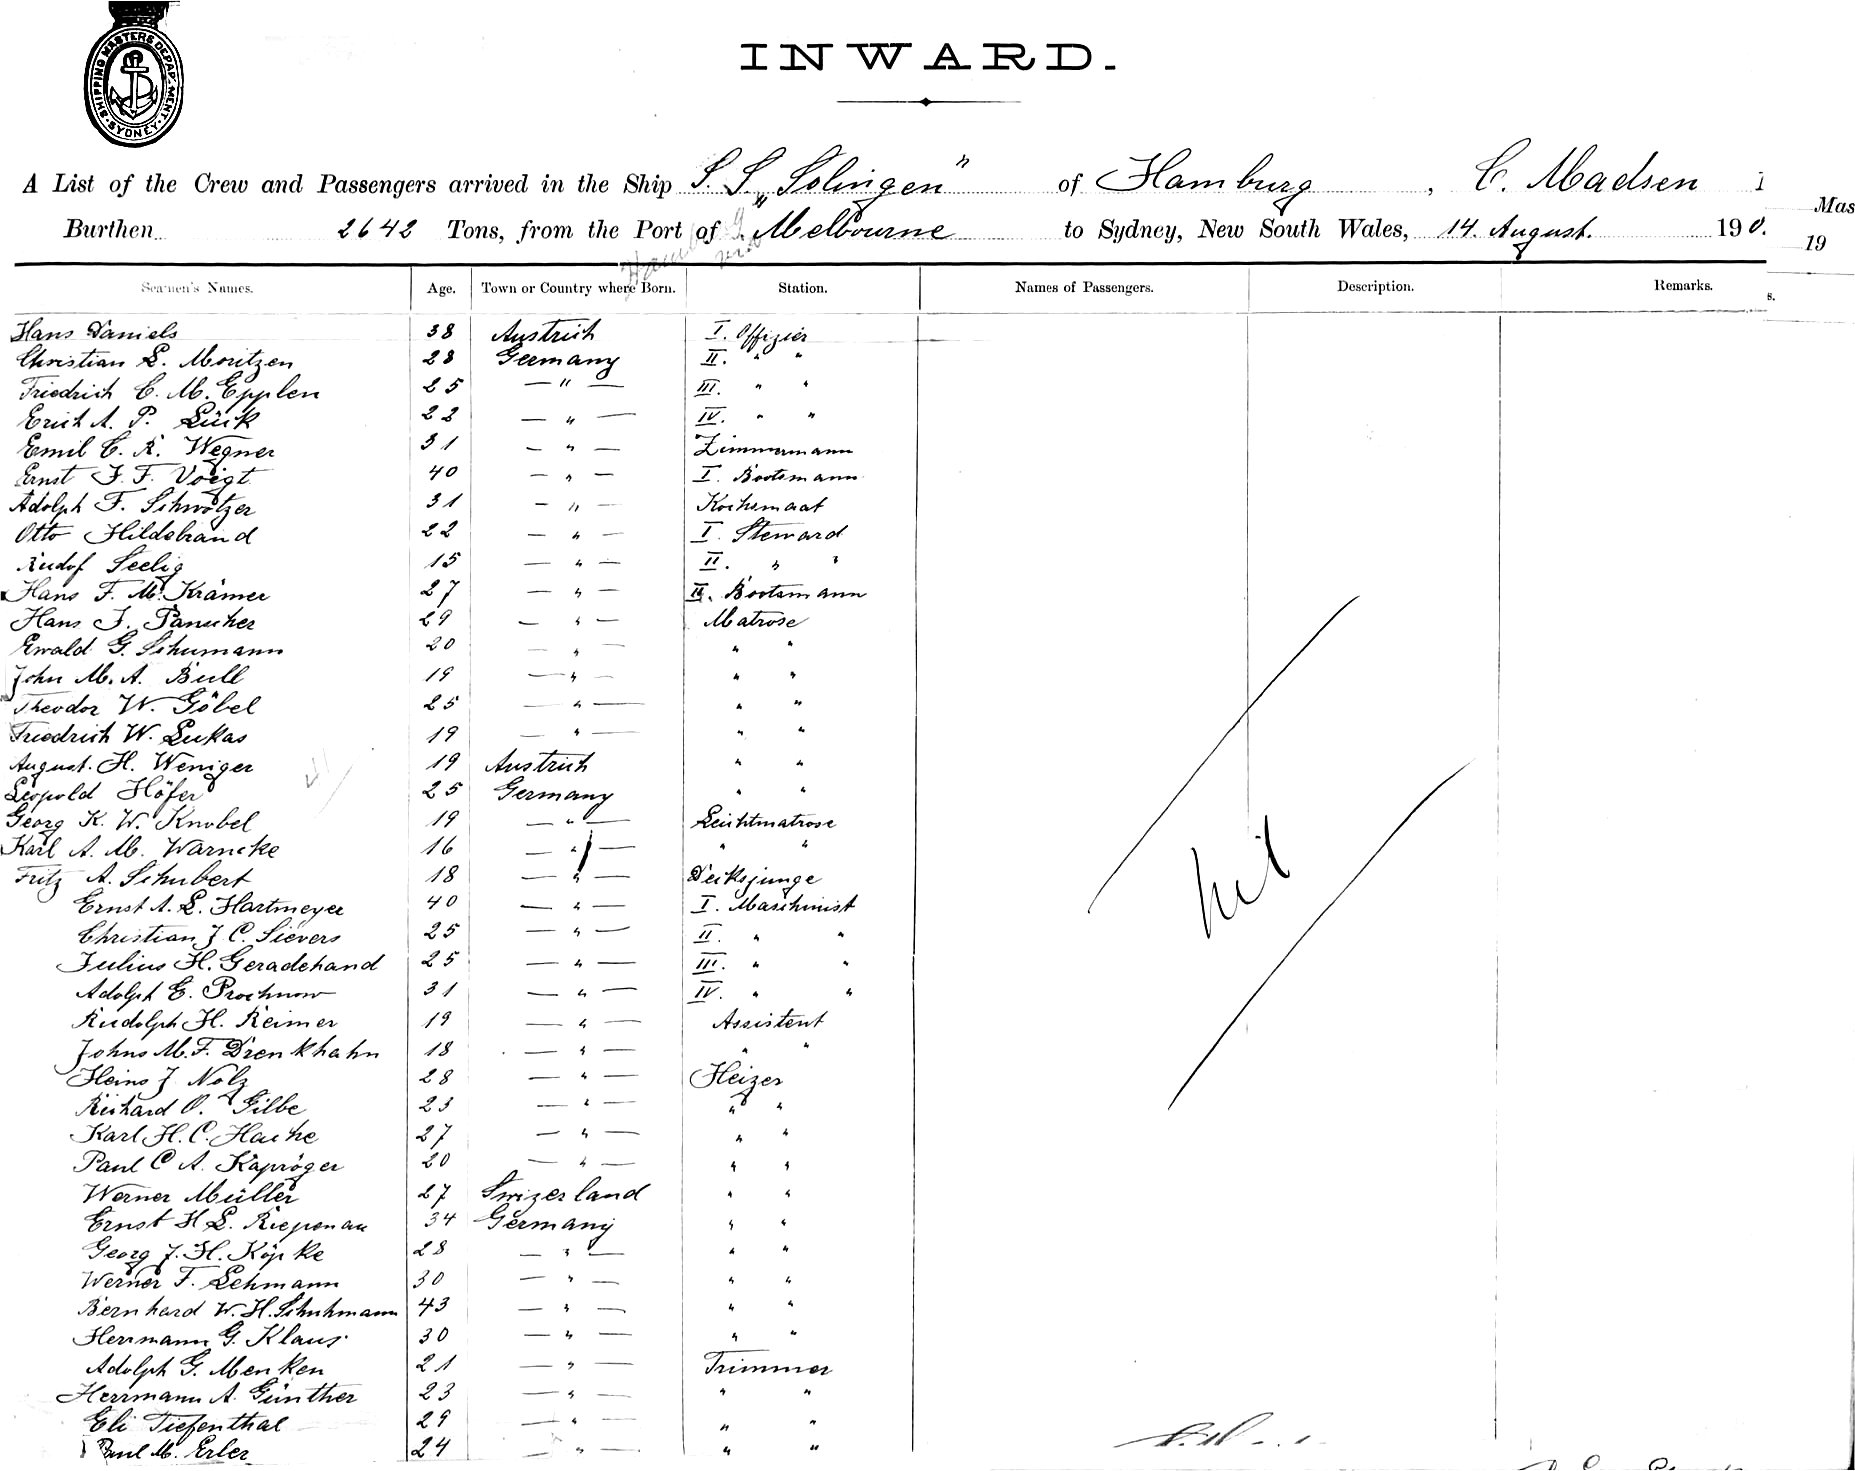 SHIPPING MASTERS DEPARTMENT. SYDNEY.
INWARD.
A List of the Crew and Passengers arrived in the Ship S. S. „Solingen" of Hamburg, C. Madsen
Mas
Burthen 2642 Tons, from the Port of Melbourne to Sydney, New South Wales, 14. August. 190.
19
Seamen's Names. Age. Town or Country where Born. Station. Names of Passengers. Description. Remarks.
s.
Hans Daniels 38 Austrich I. Offizier
Christian L. Moritzen 28 Germany II. " "
Friedrich C. M. Epplen 25 — " — III. " "
Erich A. P. Lück 22 — " — IV. " "
Emil C. R. Wegner 31 — " — Zimmermann
Ernst F. F. Voigt 40 — " — I. Bootsmann
Adolph F. Schwötzer 31 — " — Kochsmaat
Otto Hildebrand 22 — " — I. Steward
Rudof Seelig 15 — " — II. " "
Hans F. M. Krämer 27 — " — II. Bootsmann
Hans J. Panscher 29 — " — Matrose
Ewald G. Schumann 20 — " — " "
John M. A. Bull 19 — " — " "
Theodor W. Göbel 25 — " — " "
Friedrich W. Lukas 19 — " — " "
August. H. Weniger 19 Austrich " "
Leopold Höfer 25 Germany " "
Georg K. W. Knobel 19 — " — Leichtmatrose
Karl A. M. Warncke 16 — " — " "
Fritz A. Schubert 18 — " — Decksjunge
Ernst A. L. Hartmeyer 40 — " — I. Maschinist
Christian J C. Sievers 25 — " — II. " "
Julius H. Geradehand 25 — " — III. " "
Adolph E. Prochnow 31 — " — IV. " "
Rudolph H. Reimer 19 — " — Assistent
Johns M. F. Drenkhahn 18 — " — " "
Heins J Nolz 28 — " — Heizer
Richard O. Gilbe 23 — " — " "
Karl H. C. Hacke 27 — " — " "
Paul C A. Kapröger 20 — " — " "
Werner Müller 27 Swizerland " "
Ernst H L. Riepenau 34 Germany " "
Georg J. H. Köpke 28 — " — " "
Werner F. Lehmann 30 — " — " "
Bernhard W. H. Schuhmann 43 — " — " "
Herrmann G. Klaus 30 — " — " "
Adolph G. Menken 21 — " — Trimmer
Herrmann A. Günther 23 — " — " "
Eli Tiefenthal 29 — " — " "
Paul M. Erler 24 — " — " "
nil